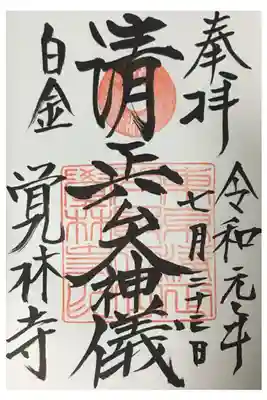 奉拝
令和元年
七月二十二日
清正公大神儀
白金
覚林寺